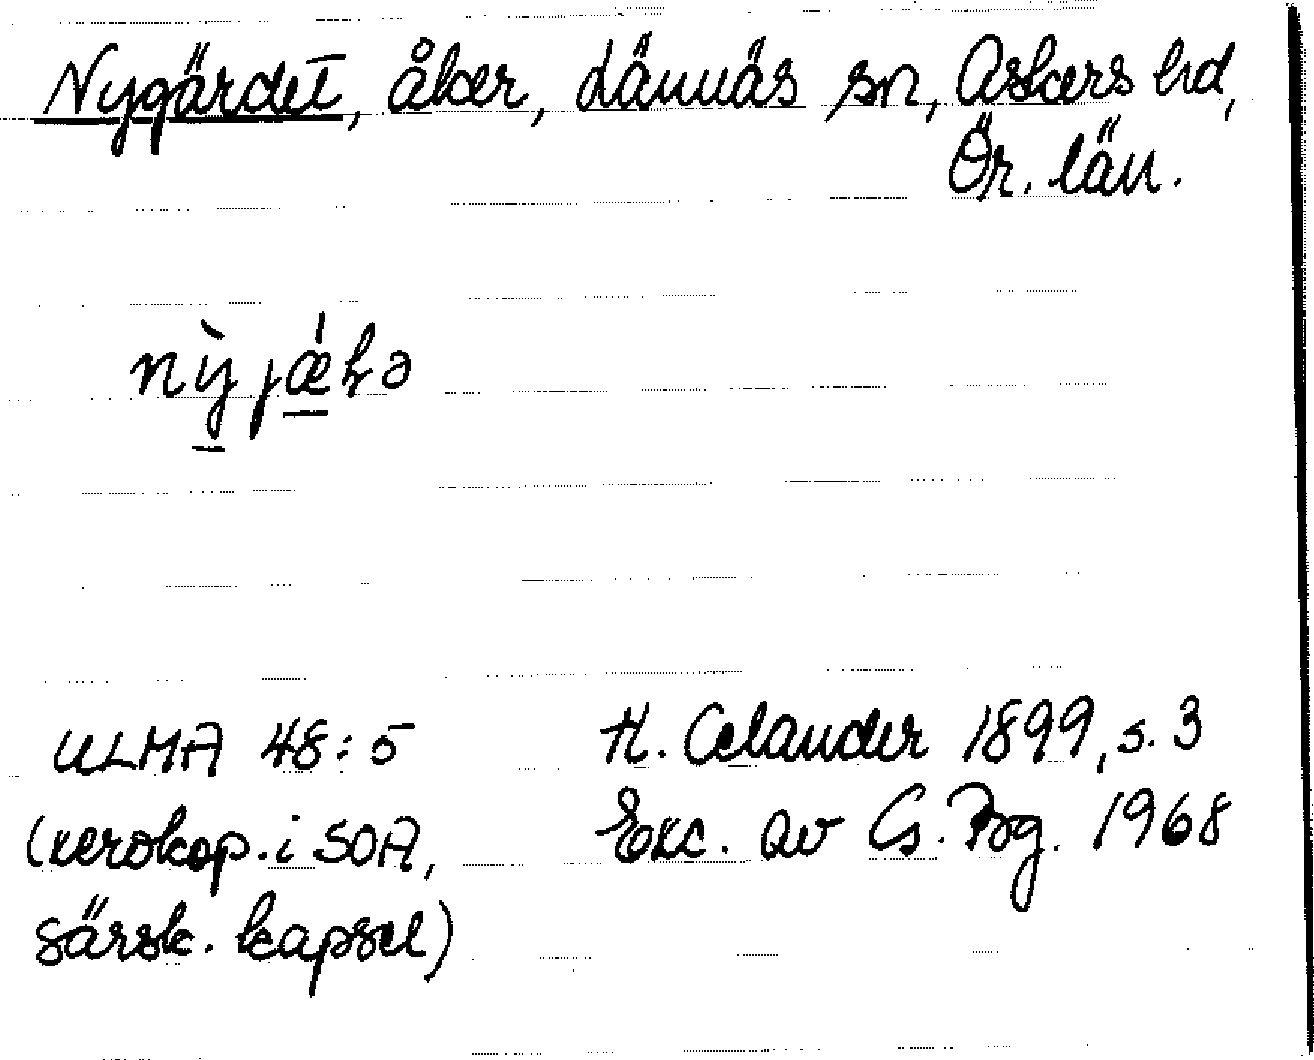 Nygärdet, åker, Lännäs sn, Askers hd,
Ör. län.
nỳjǽɫə
ULMA 48:5
H. Celander 1899, s. 3
(xerokop. i SOA,
Exc. av G. Bg. 1968
särsk. kapsel)